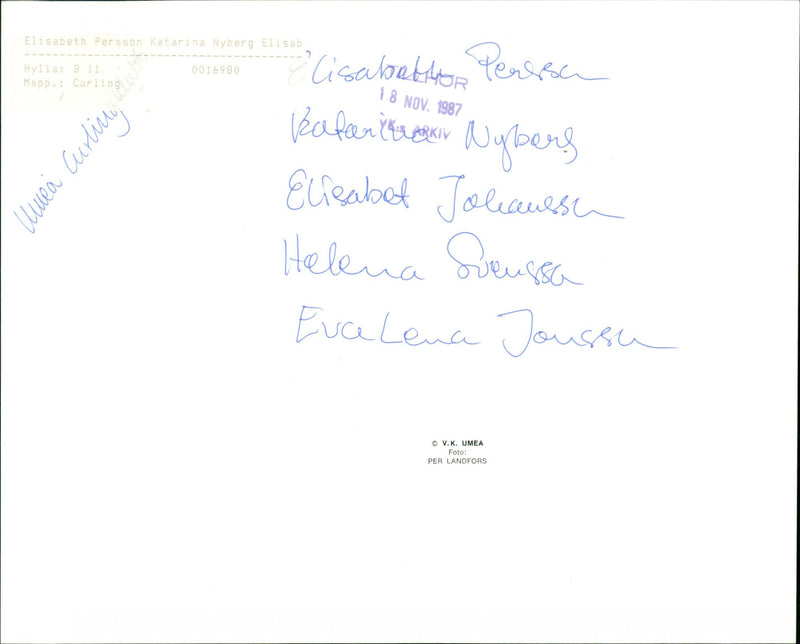 Elisabeth Persson Katarina Nyberg Elisab
Hylla: B 11 0016980
Mapp.: Curling
Umeå Curling
Elisabeth Persson
TILLHÖR
18 NOV. 1987
VK:s ARKIV
Katarina Nyberg
Elisabet Johansson
Helena Svensson
EvaLena Jonsson
© V.K. UMEA
Foto:
PER LANDFORS